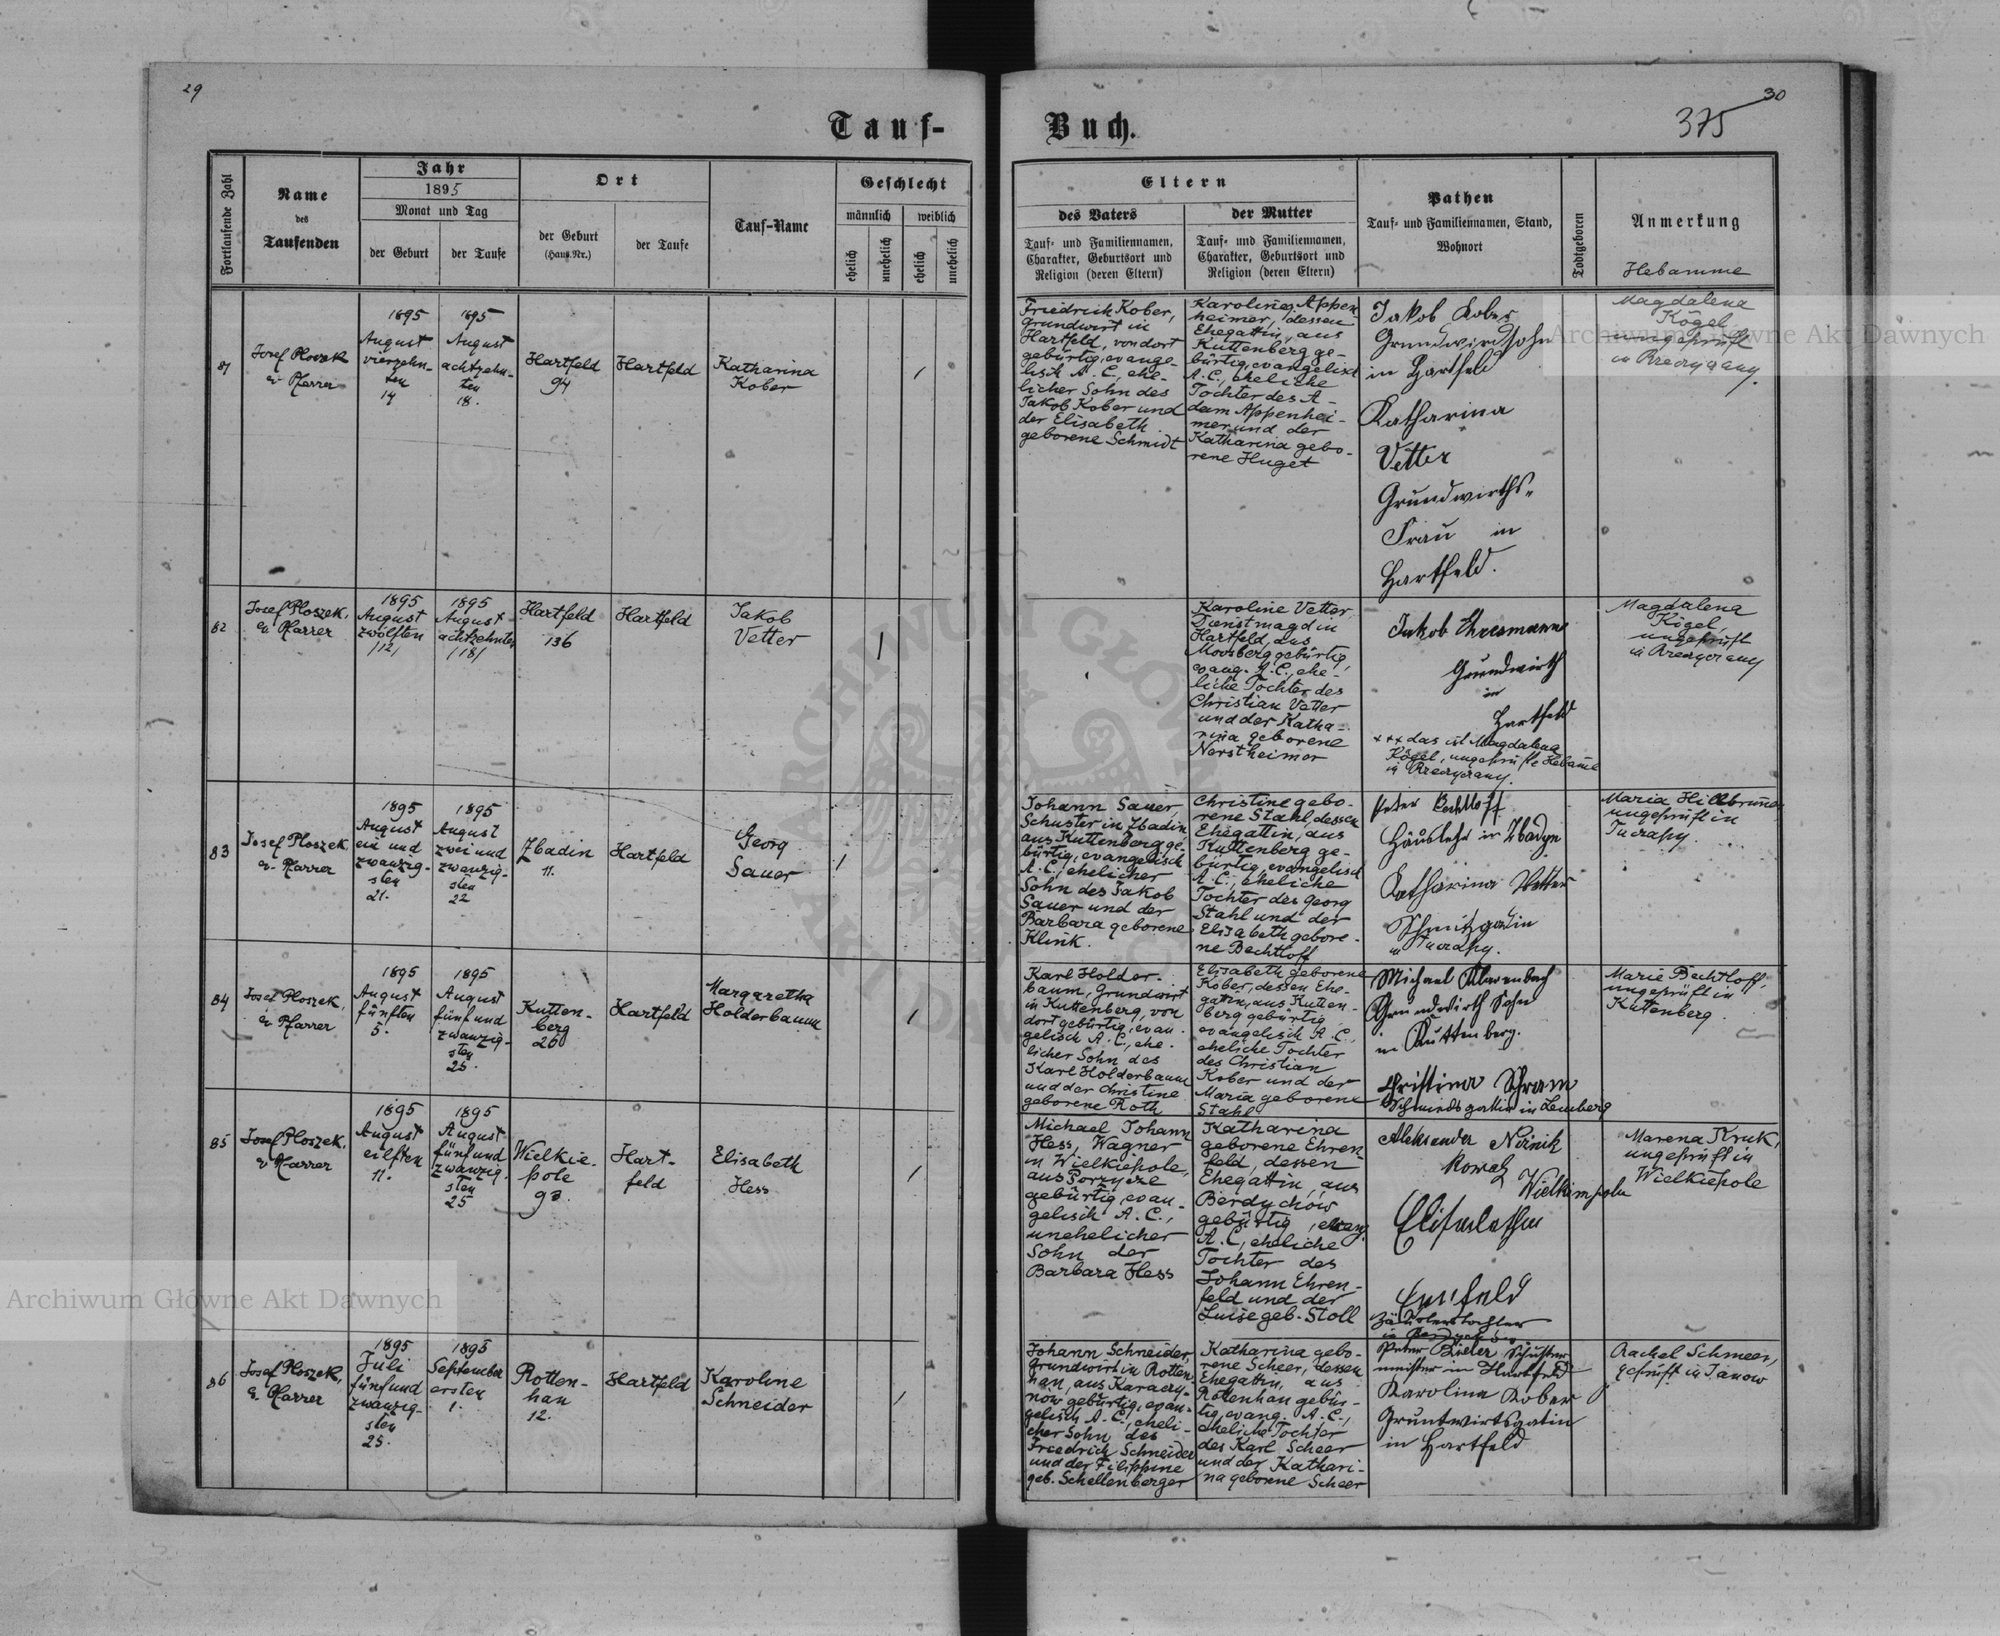 29
30
375
Tauf-
Buch.
Fortlaufende Zahl
Name
des
Taufenden
Jahr
1895
Monat und Tag
der Geburt
der Taufe
Ort
der Geburt
(Haus.Nr.)
der Taufe
Tauf-Name
Geschlecht
männlich
weiblich
ehelich
unehelich
ehelich
unehelich
Eltern
des Vaters
Tauf- und Familiennamen,
Charakter, Geburtsort und
Religion (deren Eltern)
der Mutter
Tauf- und Familiennamen,
Charakter, Geburtsort und
Religion (deren Eltern)
Pathen
Tauf- und Familiennamen, Stand,
Wohnort
Todtgeboren
Anmerkung
Hebamme
81
Josef Ploszek
ev Pfarrer
1895
August
vierzehn-
ten
14
1895
August
achtzehn-
ten
18.
Hartfeld
94
Hartfeld
Katharina
Kober
1
Friedrich Kober,
Grundwirt in
Hartfeld, von dort
gebürtig, evange-
lisch A. C., ehe-
licher Sohn des
Jakob Kober und
der Elisabeth
geborene Schmidt
Karoline Appen-
heimer, dessen
Ehegattin, aus
Kuttenberg ge-
bürtig, evangelisch
A. C., eheliche
Tochter des A-
dam Appenhei-
mer und der
Katharina gebo-
rene Huget
Jakob Kober
Grundwirdsohn
in Hartfeld
Katharina
Vetter
Grundwirths-
Frau in
Hartfeld.
Magdalena
Kögel
ungeprüft
in
82
Josef Ploszek,
ev Pfarrer
1895
August
zwölften
/12/
1895
August
achtzehnten
/18/
Hartfeld
136
Hartfeld
Jakob
Vetter
1
Karoline Vetter,
Dienstmagd in
Hartfeld, aus
Moosberg gebürtig,
evang. A. C., ehe-
liche Tochter des
Christian Vetter
und der Katha-
rina geborene
Nerstheimer
Jakob Ehresmann
Grundwirth
in
Hartfeld
+++ das ist Magdalena
Kögel, ungeprüfte Hebame
in
Magdalena
Kögel,
ungeprüft
in
83
Josef Ploszek
ev. Pfarrer
1895
August
ein und
zwanzig-
sten
21.
1895
August
zwei und
zwanzig-
sten
22
Zbadin
11.
Hartfeld
Georg
Sauer
1
Johann Sauer,
Schuster in Zbadin
aus Kuttenberg ge-
bürtig, evangelisch
A. C., ehelicher
Sohn des Jakob
Sauer und der
Barbara geborene
Klink.
Christine gebo-
rene Stahl, dessen
Ehegattin, aus
Kuttenberg ge-
bürtig, evangelisch
A. C., eheliche
Tochter des Georg
Stahl und der
Elisabeth gebore-
ne Bechtloff
Peter Bechtloff
Häusler in Zbadyn
Katharina Vetter
in Tucrapy.
Maria Hillbrunner
ungeprüft in
Tucrapy.
84
Josef Ploszek,
ev Pfarrer
1895
August
fünften
5.
1895
August
fünf und
zwanzig-
sten
25.
Kutten-
berg
26
Hartfeld
Margaretha
Holderbaum
1
Karl Holder-
baum, Grundwirt
in Kuttenberg, von
dort gebürtig, evan-
gelisch A. C., ehe-
licher Sohn des
Karl Holderbaum
und der Christine
geborene Roth
Elisabeth geborene
Kober, dessen Ehe-
gattin, aus Kutten-
berg gebürtig
evangelisch A. C.,
eheliche Tochter
des Christian
Kober und der
Maria geborene
Stahl
Michael Klarenbach
Grundwirth Sohn
in Kuttenberg.
Christina Schram
Schmiedsgattin in Lemberg
Marie Bechtloff,
ungeprüft in
Kuttenberg.
85
Josef Ploszek,
ev Pfarrer
1895
August
eilften
11.
1895
August
fünf und
zwanzig-
sten
25
Wielkie-
pole
93.
Hart-
feld
Elisabeth
Hess
1
Michael Johann
Hess, Wagner
in Wielkiepole,
aus Porzycze
gebürtig, evan-
gelisch A. C.,
unehelicher
Sohn der
Barbara Hess
Katharina
geborene Ehren-
feld, dessen
Ehegattin, aus
Berdychów
gebürtig, evang.
A. C., eheliche
Tochter des
Johann Ehren-
feld und der
Luise geb. Stoll
Aleksander
Kowal
Häuslerstochter
Marena Kruk,
ungeprüft in
Wielkiepole
86
Josef Ploszek,
ev. Pfarrer
1895
Juli
fünf und
zwanzig-
sten
25.
1895
September
ersten
1.
Rotten-
han
12.
Hartfeld
Karoline
Schneider
1
Johann Schneider,
Grundwirt in Rotten-
han, aus Karaczy-
now gebürtig, evan-
gelisch A. C., eheli-
cher Sohn des
Friedrich Schneider
und der Filippine
geb. Schellenberger
Katharina gebo-
rene Scheer, dessen
Ehegattin, aus
Rottenhan gebür-
tig, evang. A. C.,
eheliche Tochter
des Karl Scheer
und der Kathari-
na geborene Scheer
Peter Schuster
meister in Hartfeld
Karolina Kober
Gruntwirtsgatin
in Hartfeld
Rachel Schmeer,
geprüft in Janow
Archiwum Główne Akt Dawnych
Archiwum Główne Akt Dawnych